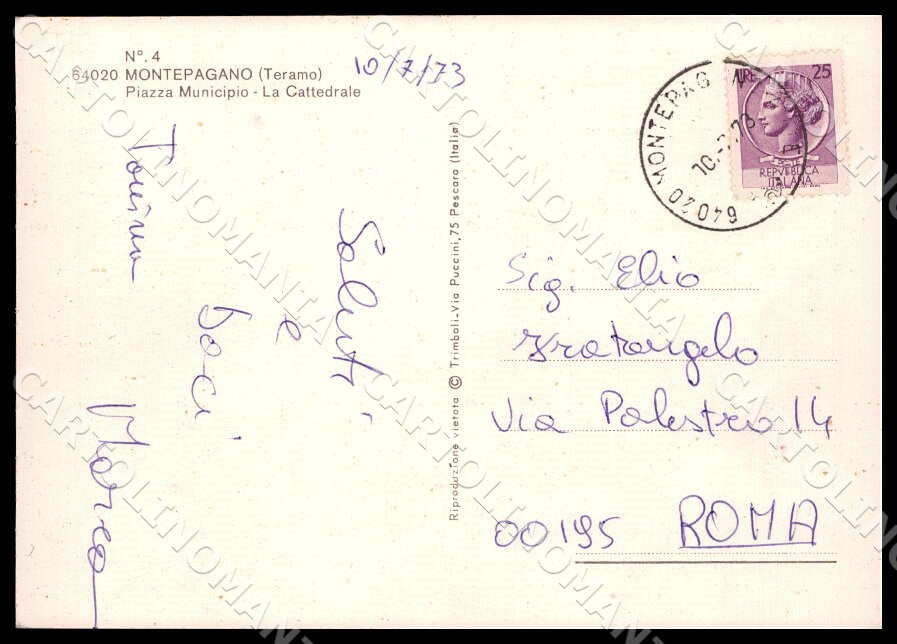 N°. 4
64020 MONTEPAGANO (Teramo)
Piazza Municipio - La Cattedrale
10/7/73
Saluti
e
baci
Marco
Riproduzione vietata © Trimboli - Via Puccini, 75 Pescara (Italia)
64020 MONTEPAG
10.7.73
LIRE 25
REPVBBLICA
ITALIANA
Sig. Elio
Fratangelo
Via Palestro 14
00195 ROMA
CARTOLINOMANIA